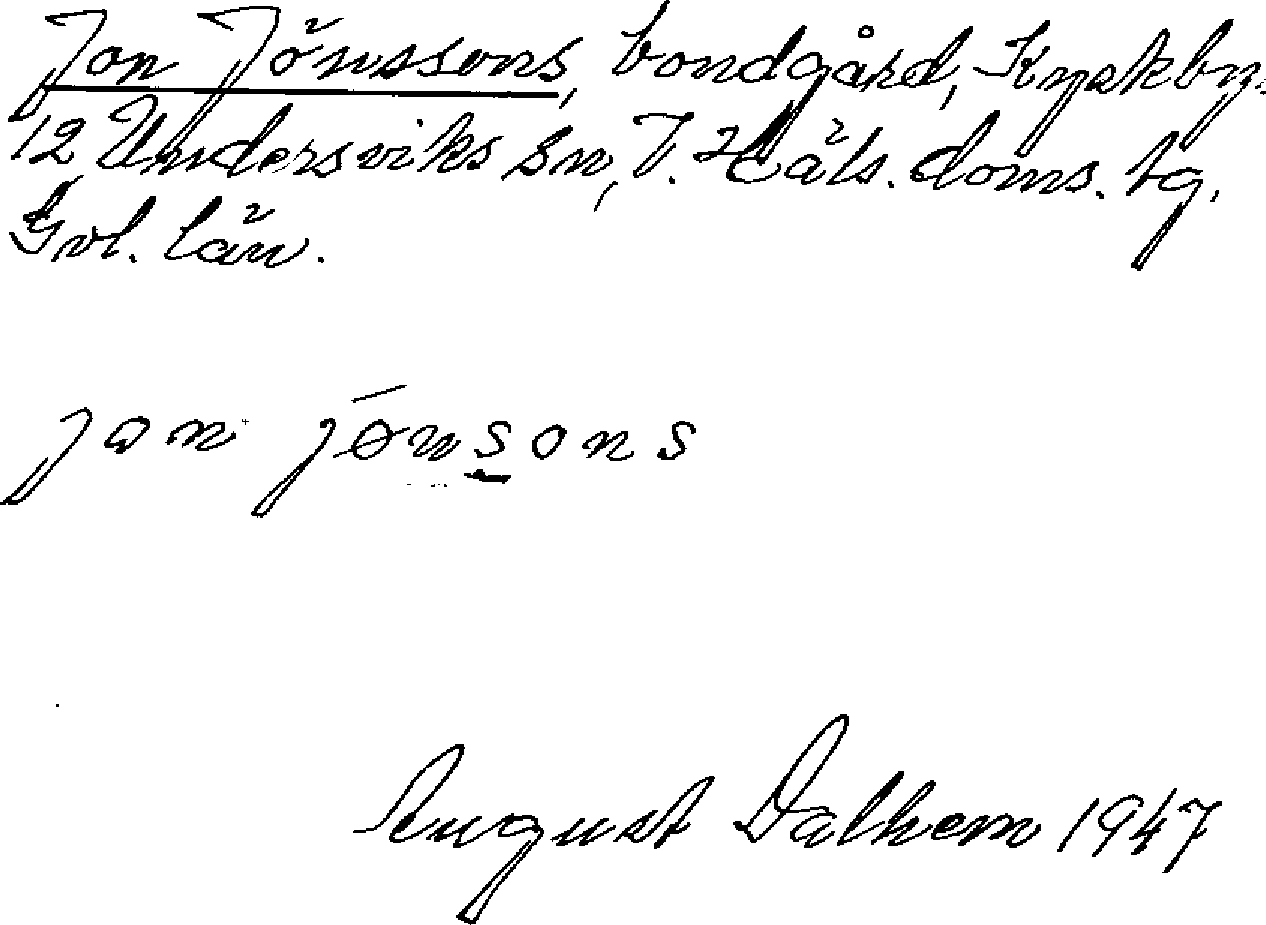 Jon Jönssons, bondgård, Kyrkby.
12, Undersviks sn, V. Häls. doms. tg.
Gvl. län.
jon jǿnsons
August Dalhem 1947